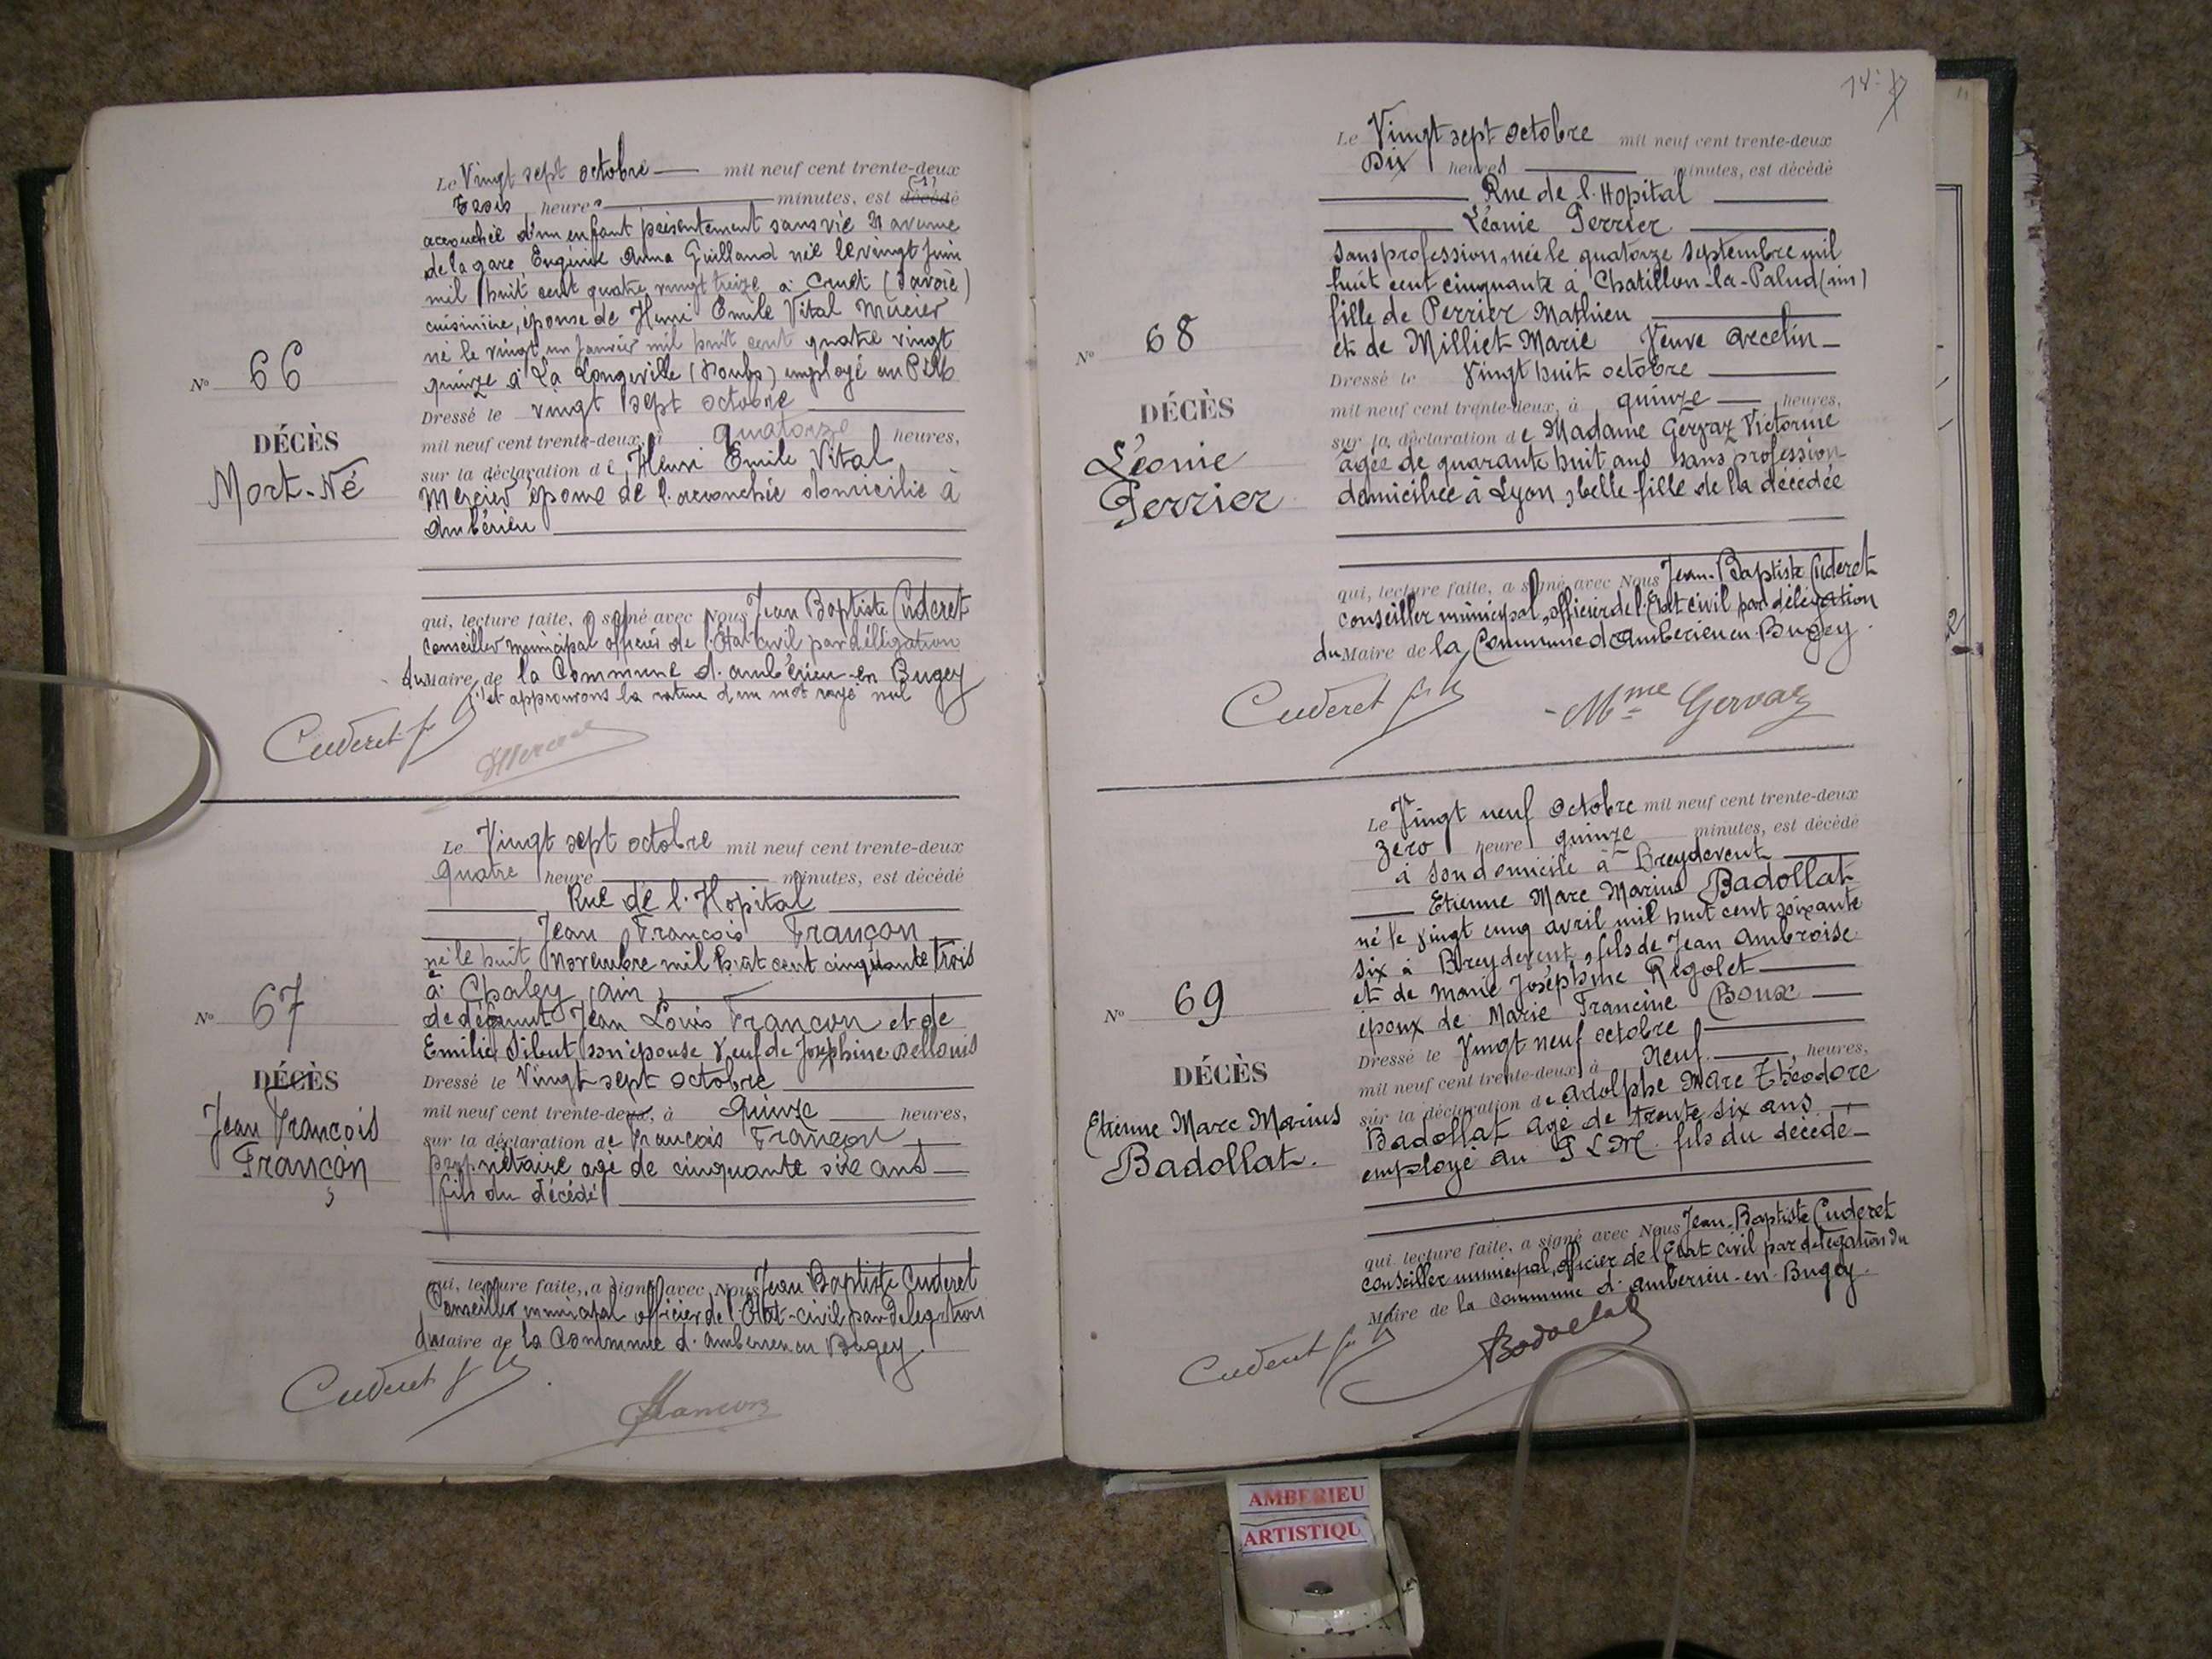 Le Vingt sept octobre mil neuf cent trente-deux
Trois heures minutes, est décédé (1)
accouchée d'un enfant présentement sans vie avenue
de la gare Eugénie Anna Guilland née le vingt juin
mil huit cent quatre vingt treize à Cruet (Savoie)
cuisinière, épouse de Henri Emile Vital Mercier
né le vingt un janvier mil huit cent quatre vingt
quinze à La Longeville (Doubs) employé au
Dressé le vingt sept octobre
mil neuf cent trente-deux, à quatorze heures,
sur la déclaration de Henri Emile Vital
Mercier époux de l'accouchée domicilié à
Ambérieu
qui, lecture faite, a signé avec Nous Jean Baptiste Cuderet
conseiller municipal officier de l'Etat civil par délégation
du Maire de la Commune d'Ambérieu-en Bugey
et approuvons la rature d'un mot rayé nul
Cuderet
Mercier
N° 66
DÉCÈS
Mort-Né
Le Vingt sept octobre mil neuf cent trente-deux
Quatre heure minutes, est décédé
Rue de l'Hopital
Jean François Françon
né le huit Novembre mil huit cent cinquante trois
à Chaley (ain)
de défunt Jean Louis Françon et de
Emilie Sibut son épouse Veuf de Joséphine Bellouis
Dressé le Vingt sept octobre
mil neuf cent trente-deux, à Quinze heures,
sur la déclaration de François Françon
propriétaire agé de cinquante six ans
fils du décédé
qui, lecture faite, a signé avec Nous Jean Baptiste Cuderet
Conseiller municipal officier de l'Etat-civil par délégation
du Maire de la Commune d'Amberieu en Bugey.
Cuderet
Francon
N° 67
DÉCÈS
Jean François
Françon
Le Vingt sept octobre mil neuf cent trente-deux
Dix heures minutes, est décédé
Rue de l'Hopital
Léonie Perrier
sans profession, née le quatorze septembre mil
huit cent cinquante à Chatillon-la-Palud (ain)
fille de Perrier Mathieu
et de Milliet Marie Veuve Arcelin
Dressé le Vingt huit octobre
mil neuf cent trente-deux, à quinze heures,
sur la déclaration de Madame Gervaz Victorine
agée de quarante huit ans sans profession
domiciliée à Lyon, belle fille de la décédée
qui, lecture faite, a signé avec Nous Jean-Baptiste Cuderet
conseiller municipal, officier de l'Etat civil par délégation
du Maire de la Commune d'Amberieu en Bugey.
Cuderet
Mme Gervaz
N° 68
DÉCÈS
Léonie
Perrier
Le Vingt neuf octobre mil neuf cent trente-deux
Zéro heure quinze minutes, est décédé
à son domicile à Breydevent
Etienne Marc Marius Badollat
né le vingt cinq avril mil huit cent soixante
six à Breydevent, fils de Jean Ambroise
et de Marie Joséphine Rigolet
époux de Marie Francine Boux
Dressé le Vingt neuf octobre
mil neuf cent trente-deux, à Neuf heures,
sur la déclaration de Adolphe Marc Théodore
Badollat agé de trente six ans
employé au PLM fils du décédé
qui lecture faite, a signé avec Nous Jean-Baptiste Cuderet
conseiller municipal, officier de l'Etat civil par délégation du
Maire de la commune d'Amberieu-en-Bugey.
Cuderet
Badollat
N° 69
DÉCÈS
Etienne Marc Marius
Badollat.
AMBERIEU
ARTISTIQU